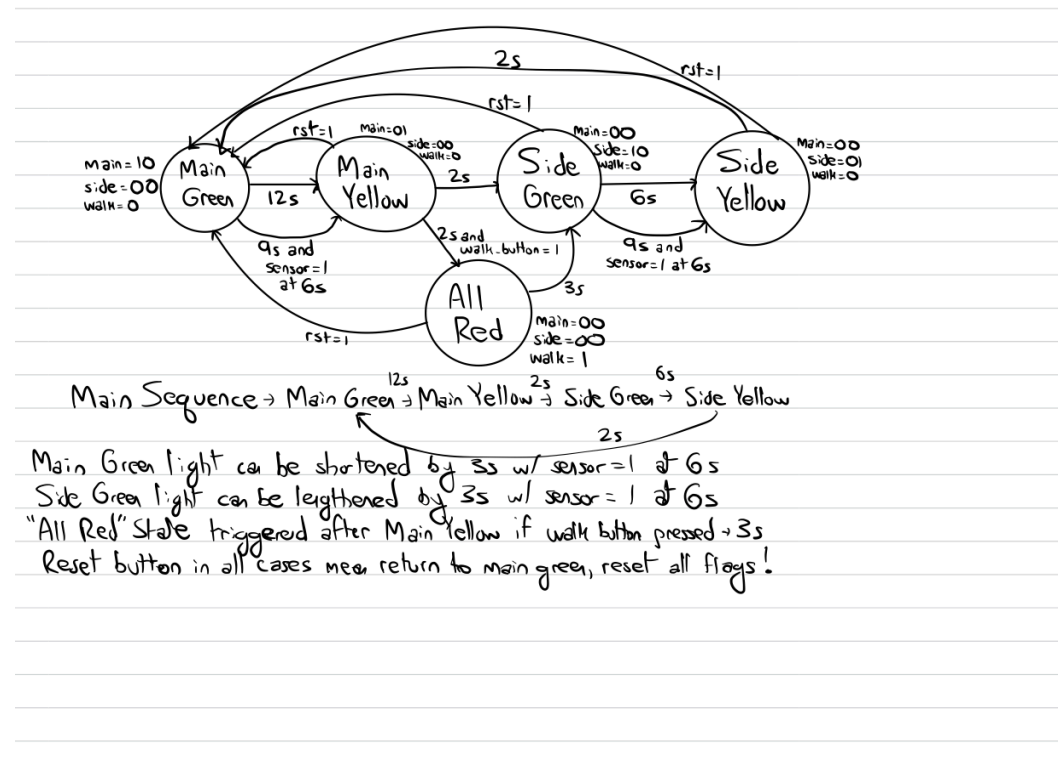 2s
rst=1
rst=1
rst=1
Main=01
side=00
walk=0
Main=00
Side=10
walk=0
Main=00
Side=01
walk=0
Main=10
side=00
walk=0
Main
Green
12s
Main
Yellow
2s
Side
Green
6s
Side
Yellow
9s and
sensor=1
at 6s
2s and
walk-button=1
9s and
sensor=1 at 6s
All
Red
3s
rst=1
Main=00
side=00
walk=1
12s 2s 6s
Main Sequence → Main Green → Main Yellow → Side Green → Side Yellow
2s
Main Green light can be shortened by 3s w/ sensor=1 at 6s
Side Green light can be leygthened by 3s w/ sensor=1 at 6s
"All Red" State triggered after Main Yellow if walk button pressed → 3s
Reset button in all cases mean return to main green, reset all flags!